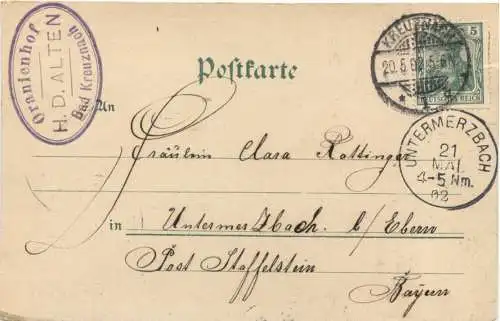 Oranienhof
H. D. ALTEN
Bad Kreuznach
Postkarte
KREUZNACH
20.5.02.5-6N
5
DEUTSCHES REICH
An
Fräulein Clara Rottinger
in Untermerzbach b/ Ebern
Post Staffelstein
Bayern
UNTERMERZBACH
21
MAI
4-5 Nm.
02